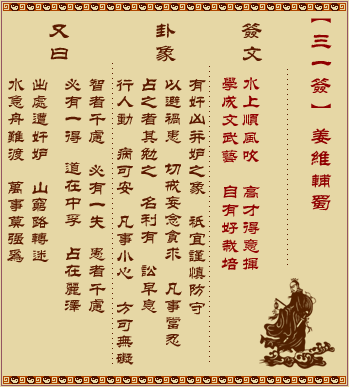 【三一簽】 姜維輔蜀
簽文
水上順風吹 高才得意揮
學成文武藝 自有好栽培
卦象
有奸凶并妒之象 祇宜謹慎防守
以避禍患 切戒妄念貪求 凡事當忍
占之者其勉之 名利有 訟早息
行人動 病可安 凡事小心 方可無礙
又曰
智者千慮 必有一失 愚者千慮
必有一得 道在中孚 占在麗澤
出處遭奸妒 山窮路轉迷
水急舟難渡 萬事莫強為